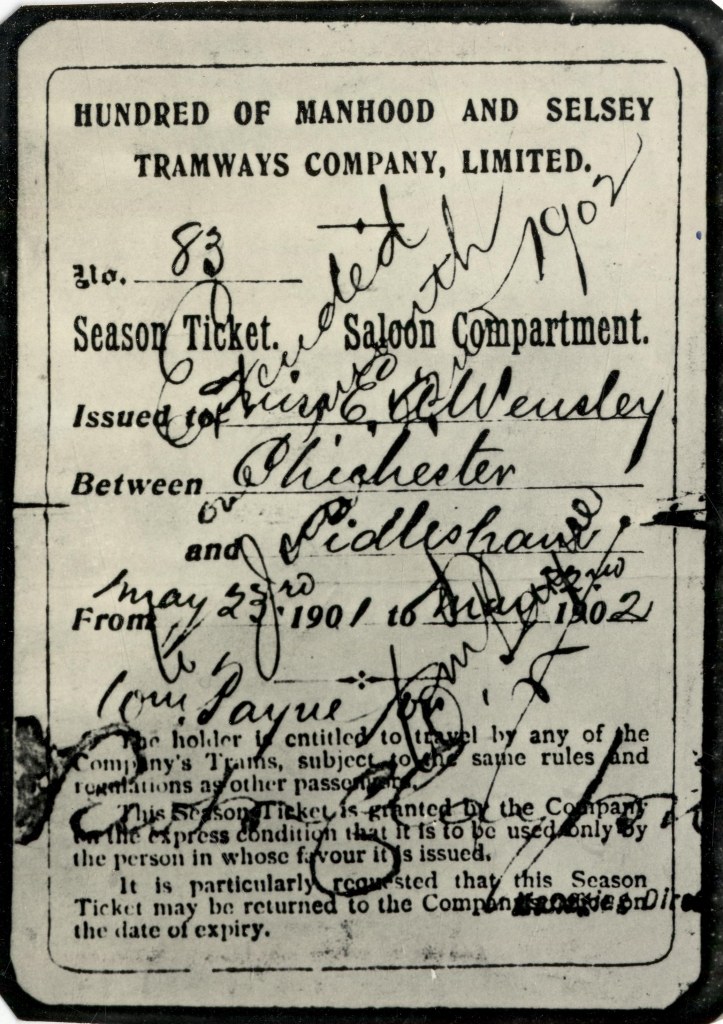 HUNDRED OF MANHOOD AND SELSEY
TRAMWAYS COMPANY, LIMITED.
No. 83
Season Ticket. Saloon Compartment.
Extended
1902
Issued to Miss E. Wensley
Between Chichester
and Sidlesham
From May 23rd 1901 to May 22nd 1902
Tom Payne
The holder is entitled to travel by any of the
Company's Trams, subject to the same rules and
regulations as other passengers.
This Season Ticket is granted by the Company
on the express condition that it is to be used only by
the person in whose favour it is issued.
It is particularly requested that this Season
Ticket may be returned to the Company's on
the date of expiry.